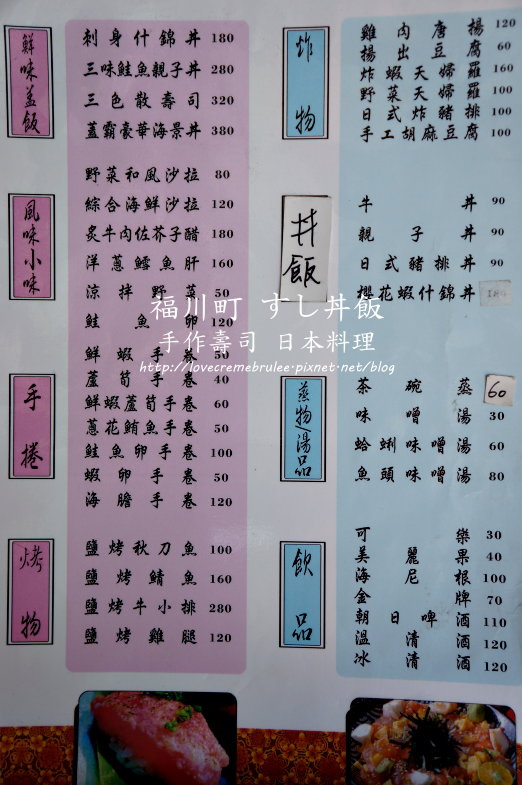 鮮味盖飯
刺身什錦丼 180
三味鮭魚親子丼 280
三色散壽司 320
蓋霸豪華海景丼 380
風味小味
野菜和風沙拉 80
綜合海鮮沙拉 120
炙牛肉佐芥子醋 180
洋蔥鱈魚肝 160
涼拌野菜 50
鮭魚卵 120
手捲
鮮蝦手卷 50
蘆筍手卷 40
鮮蝦蘆筍手卷 60
蔥花鮪魚手卷 50
鮭魚卵手卷 100
蝦卵手卷 50
海膽手卷 120
烤物
鹽烤秋刀魚 100
鹽烤鯖魚 160
鹽烤牛小排 280
鹽烤雞腿 120
炸物
雞肉唐揚 120
揚出豆腐 60
炸蝦天婦羅 160
野菜天婦羅 100
日式炸豬排 100
手工胡麻豆腐 100
丼飯
牛丼 90
親子丼 90
日式豬排丼 90
櫻花蝦什錦丼
蒸物/湯品
茶碗蒸 60
味噌湯 30
蛤蜊味噌湯 60
魚頭味噌湯 80
飲品
可樂 30
美麗果 40
海尼根 100
金牌 70
朝日啤酒 110
溫清酒 120
冰清酒 120
福川町 すし丼飯
手作壽司 日本料理
http://lovecremebrulee.pixnet.net/blog